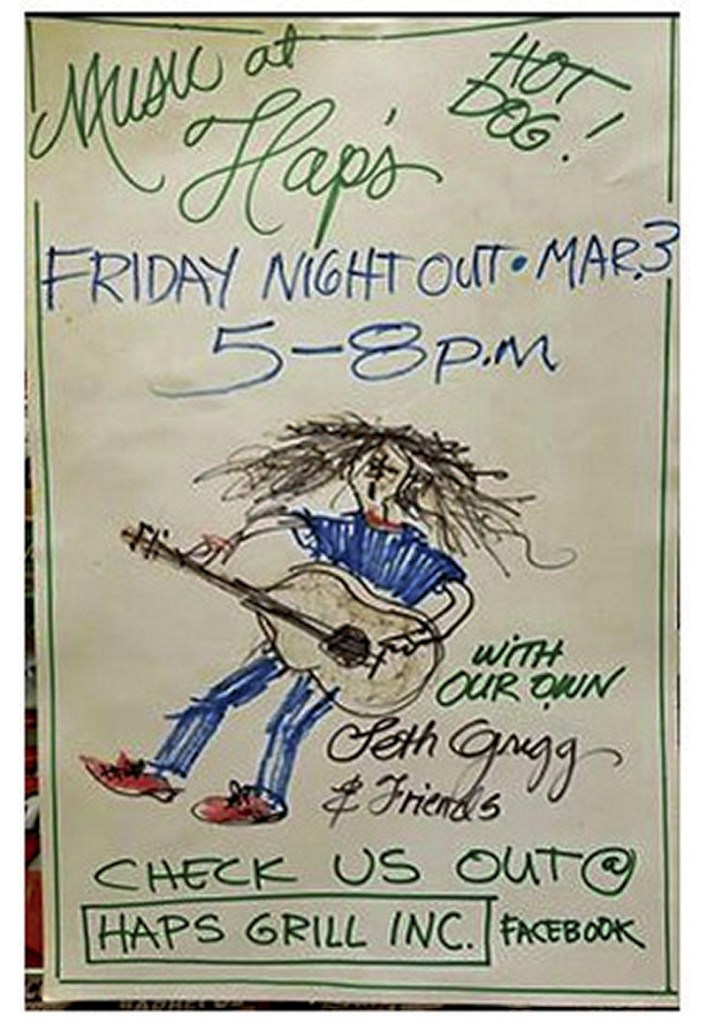 Music at
Hap's
HOT
DOG!
FRIDAY NIGHT OUT • MAR. 3
5-8 P.M
WITH
OUR OWN
Seth Grigg
& Friends
CHECK US OUT @
HAPS GRILL INC. FACEBOOK